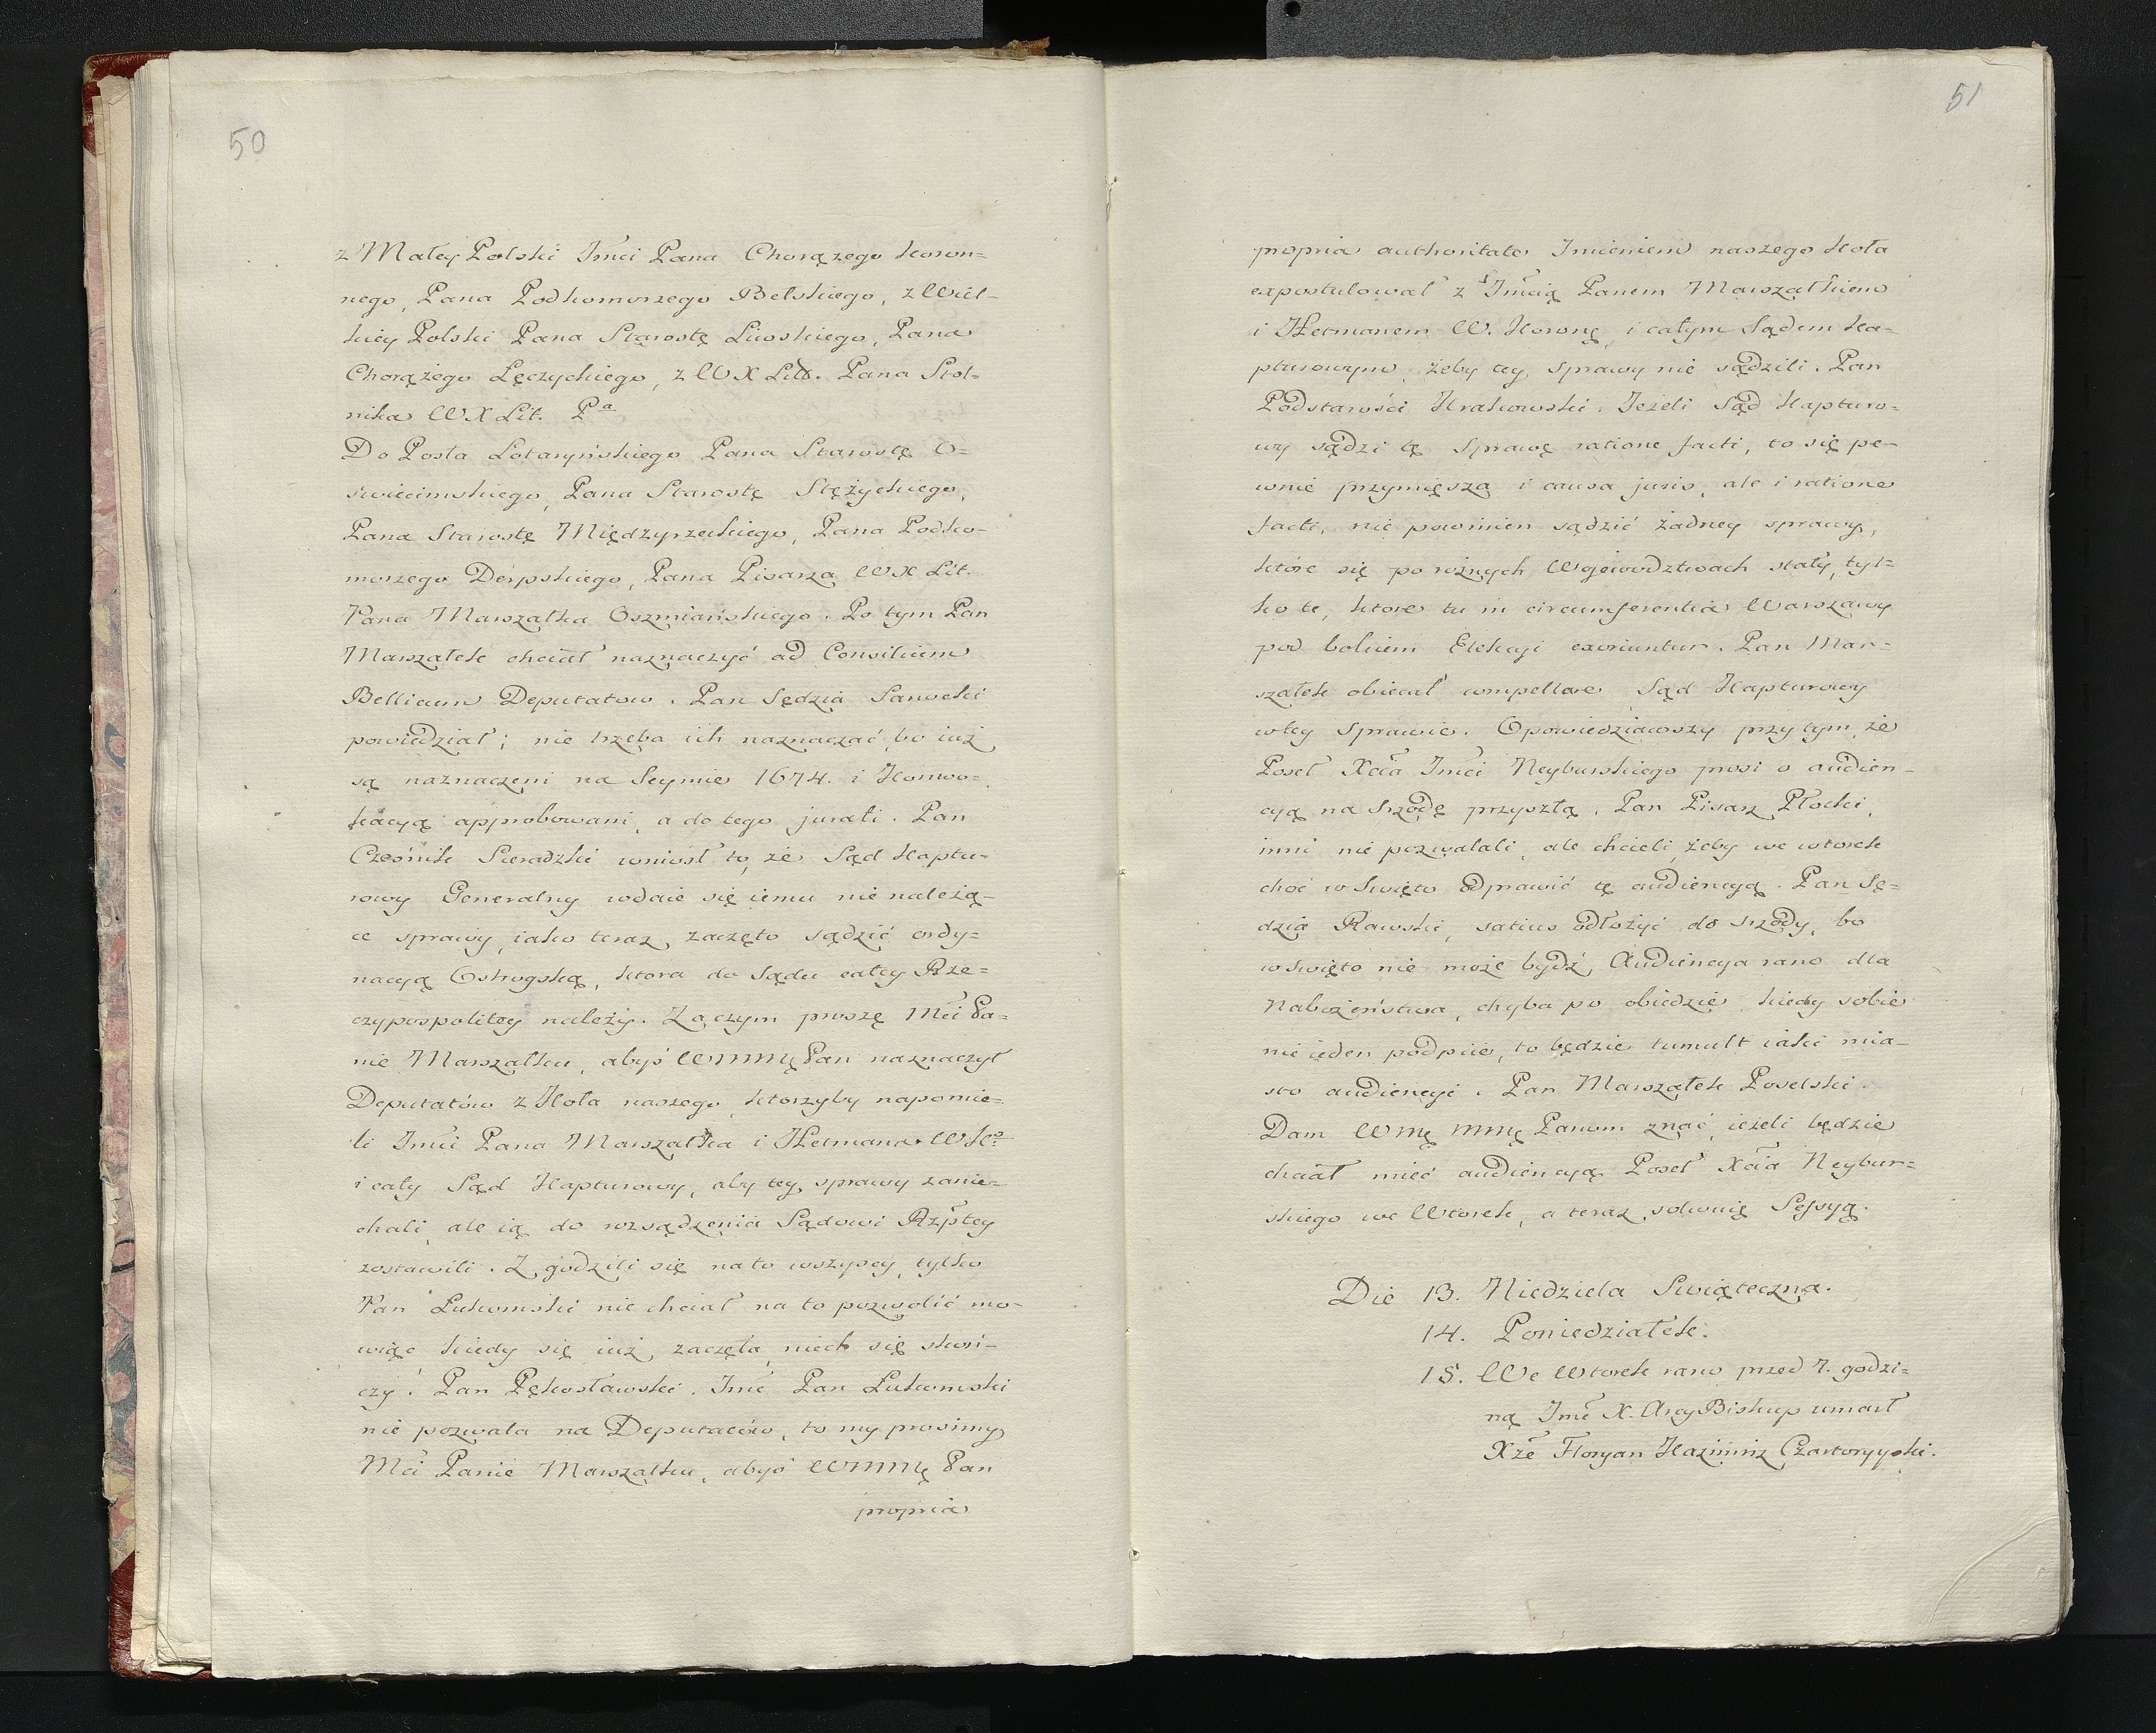 50
z Małey Polski Jmći Pana Chorązego Koron=
nego, Pana Podkomorzego Bełskiego, z Wiel-
kiey Polski Pana Starostę Liwskiego, Pana
Chorążego Łęczyckiego, z W X Litt. Pana Stol-
nika W X Lit. Pa
Do Posła Lotaryńskiego Pana Starostę O=
swiecimskiego, Pana Starostę Stężyckiego,
Pana Starostę Międzyrzeckiego, Pana Podko-
morzego Derpskiego, Pana Pisarza W X Lit.
Pana Marszałka Oszmiańskiego. Po tym Pan
Marszałek chciał naznaczyć ad Consilium
Bellicum Deputatow. Pan Sędzia Sanocki
powiedział; nie trzeba ich naznaczać, bo iuż
są naznaczeni na Seymie 1674. i Konwo=
kacyą approbowani, a do tego jurati. Pan
Cześnik Sieradzki wniosł to, że Sąd Kaptu-
rowy Generalny wdaie się iemu nie należą-
ce sprawy, iako teraz zaczęto sądzić ordy=
nacyą Ostrogską, ktora do Sądu całey Rze=
czypospolitey należy. Zaczym proszę Mći Pa=
nie Marszałku, abyś WMMę Pan naznaczył
Deputatów z Koła naszego, ktorzyby napomie=
li Jmći Pana Marszałka i Hetmana W Ko
i cały Sąd Kapturowy, aby tey sprawy zanie=
chali, ale ią do rozsądzenia Sądowi Rzptey
zostawili. Zgodzili się na to wszyscy, tylko
Pan Łukomski nie chciał na to pozwolić mo-
wiąc kiedy się iuż zaczęła, niech się skoń-
czy. Pan Pękosławski. Jmć Pan Łukomski
nie pozwala na Deputatów, to my prosimy
Mći Panie Marszałku, abyś WMMę Pan
propria
51
propria authoritate Imieniem naszego Koła
expostulował z Jmcią Panem Marszałkiem
i Hetmanem W. Koronę, i całym Sądem Ka=
pturowym, żeby tey sprawy nie sądzili. Pan
Podstarości Krakowski. Jeżeli Sąd Kapturo=
wy sądzi tę Sprawę ratione facti, to się pe-
wnie przymięsza i causa juris, ale i ratione
facti, nie powinien sądzić żadney sprawy,
które się po rożnych Wojewodztwach stały, tyl=
ko te, ktore tu in circumferentia Warszawy
pod bokiem Elekcyi exoriuntur. Pan Mar=
szałek obiecał compellare Sąd Kapturowy
w tey Sprawie. Opowiedziawszy przy tym, że
Poseł Xcia Jmći Neyburskiego prosi o audien-
cyą na Szrodę przyszłą. Pan Pisarz Płocki,
inni nie pozwalali, ale chcieli, żeby we wtorek
choć w Swięto odprawić tę audiencyą. Pan Sę=
dzia Rawski, satius odłożyć do szrody, bo
w swięto nie może bydź Audiencya rano dla
Nabożeństwa, chyba po obiedzie, kiedy sobie
nie ieden podpiie, to będzie tumult iaki mia-
sto audiencyi. Pan Marszałek Poselski.
Dam WMę MMę Panom znać, ieżeli będzie
chciał mieć audiencyą Poseł Xcia Neybur=
skiego we Wtorek, a teraz solwuię Sessyą.
Die 13. Niedziela Swiąteczna.
14. Poniedziałek.
15. We Wtorek rano przed 7. godzi=
ną Jmć X. Arcy Biskup umarł
Xże Floryan Kazimirz Czartoryyski.